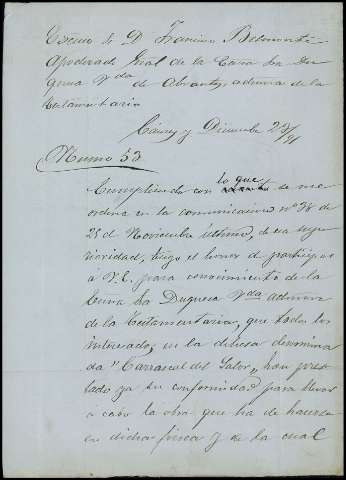 Excmo Sr D Francisco Belmonte
Apoderado Gral de la Exma Sra Du
quesa Vda de Abrantes, admra de la
testamentaria
Cáceres y Diciembre 23/91
Numo 53
Cumpliendo con lo que se me
ordena en la comunicacion nº 38 de
25 de Noviembre último, de esa supe
rioridad, tengo el honor de participar
á V.E. para conocimiento de la
Exma Sra Duquesa Vda admra
de la Testamentaria, que todos los
interesados, en la dehesa denomina
da "Carrascal del Salor", han pres
tado ya su conformidad para llevar
a cabo la obra que ha de hacerse
en dicha finca y de la cual